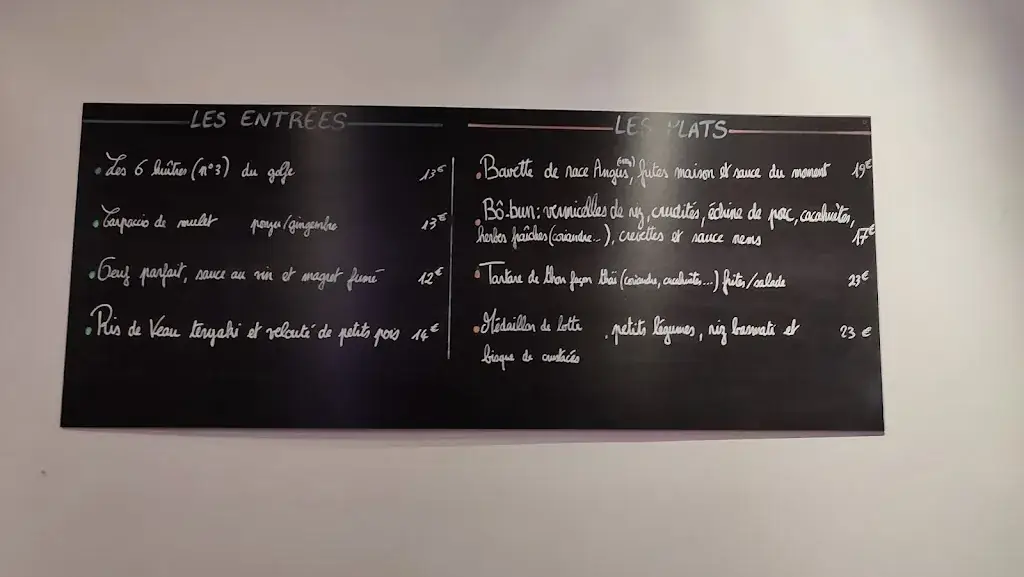 LES ENTRÉES
• Les 6 huîtres (n°3) du golfe 13€
• Carpaccio de mulet ponzu/gingembre 13€
• Oeuf parfait, sauce au vin et magret fumé 12€
• Ris de Veau teryaki et velouté de petits pois 14€
LES PLATS
• Bavette de race Angus, frites maison et sauce du moment 19€
• Bô-bun: vermicelles de riz, crudités, échine de porc, cacahuètes,
herbes fraîches (coriandre...), crevettes et sauce nems 17€
• Tartare de thon façon thaï (coriandre, cacahuètes...) frites/salade 23€
• Médaillon de lotte . petits légumes, riz basmati et 23 €
bisque de crustacés